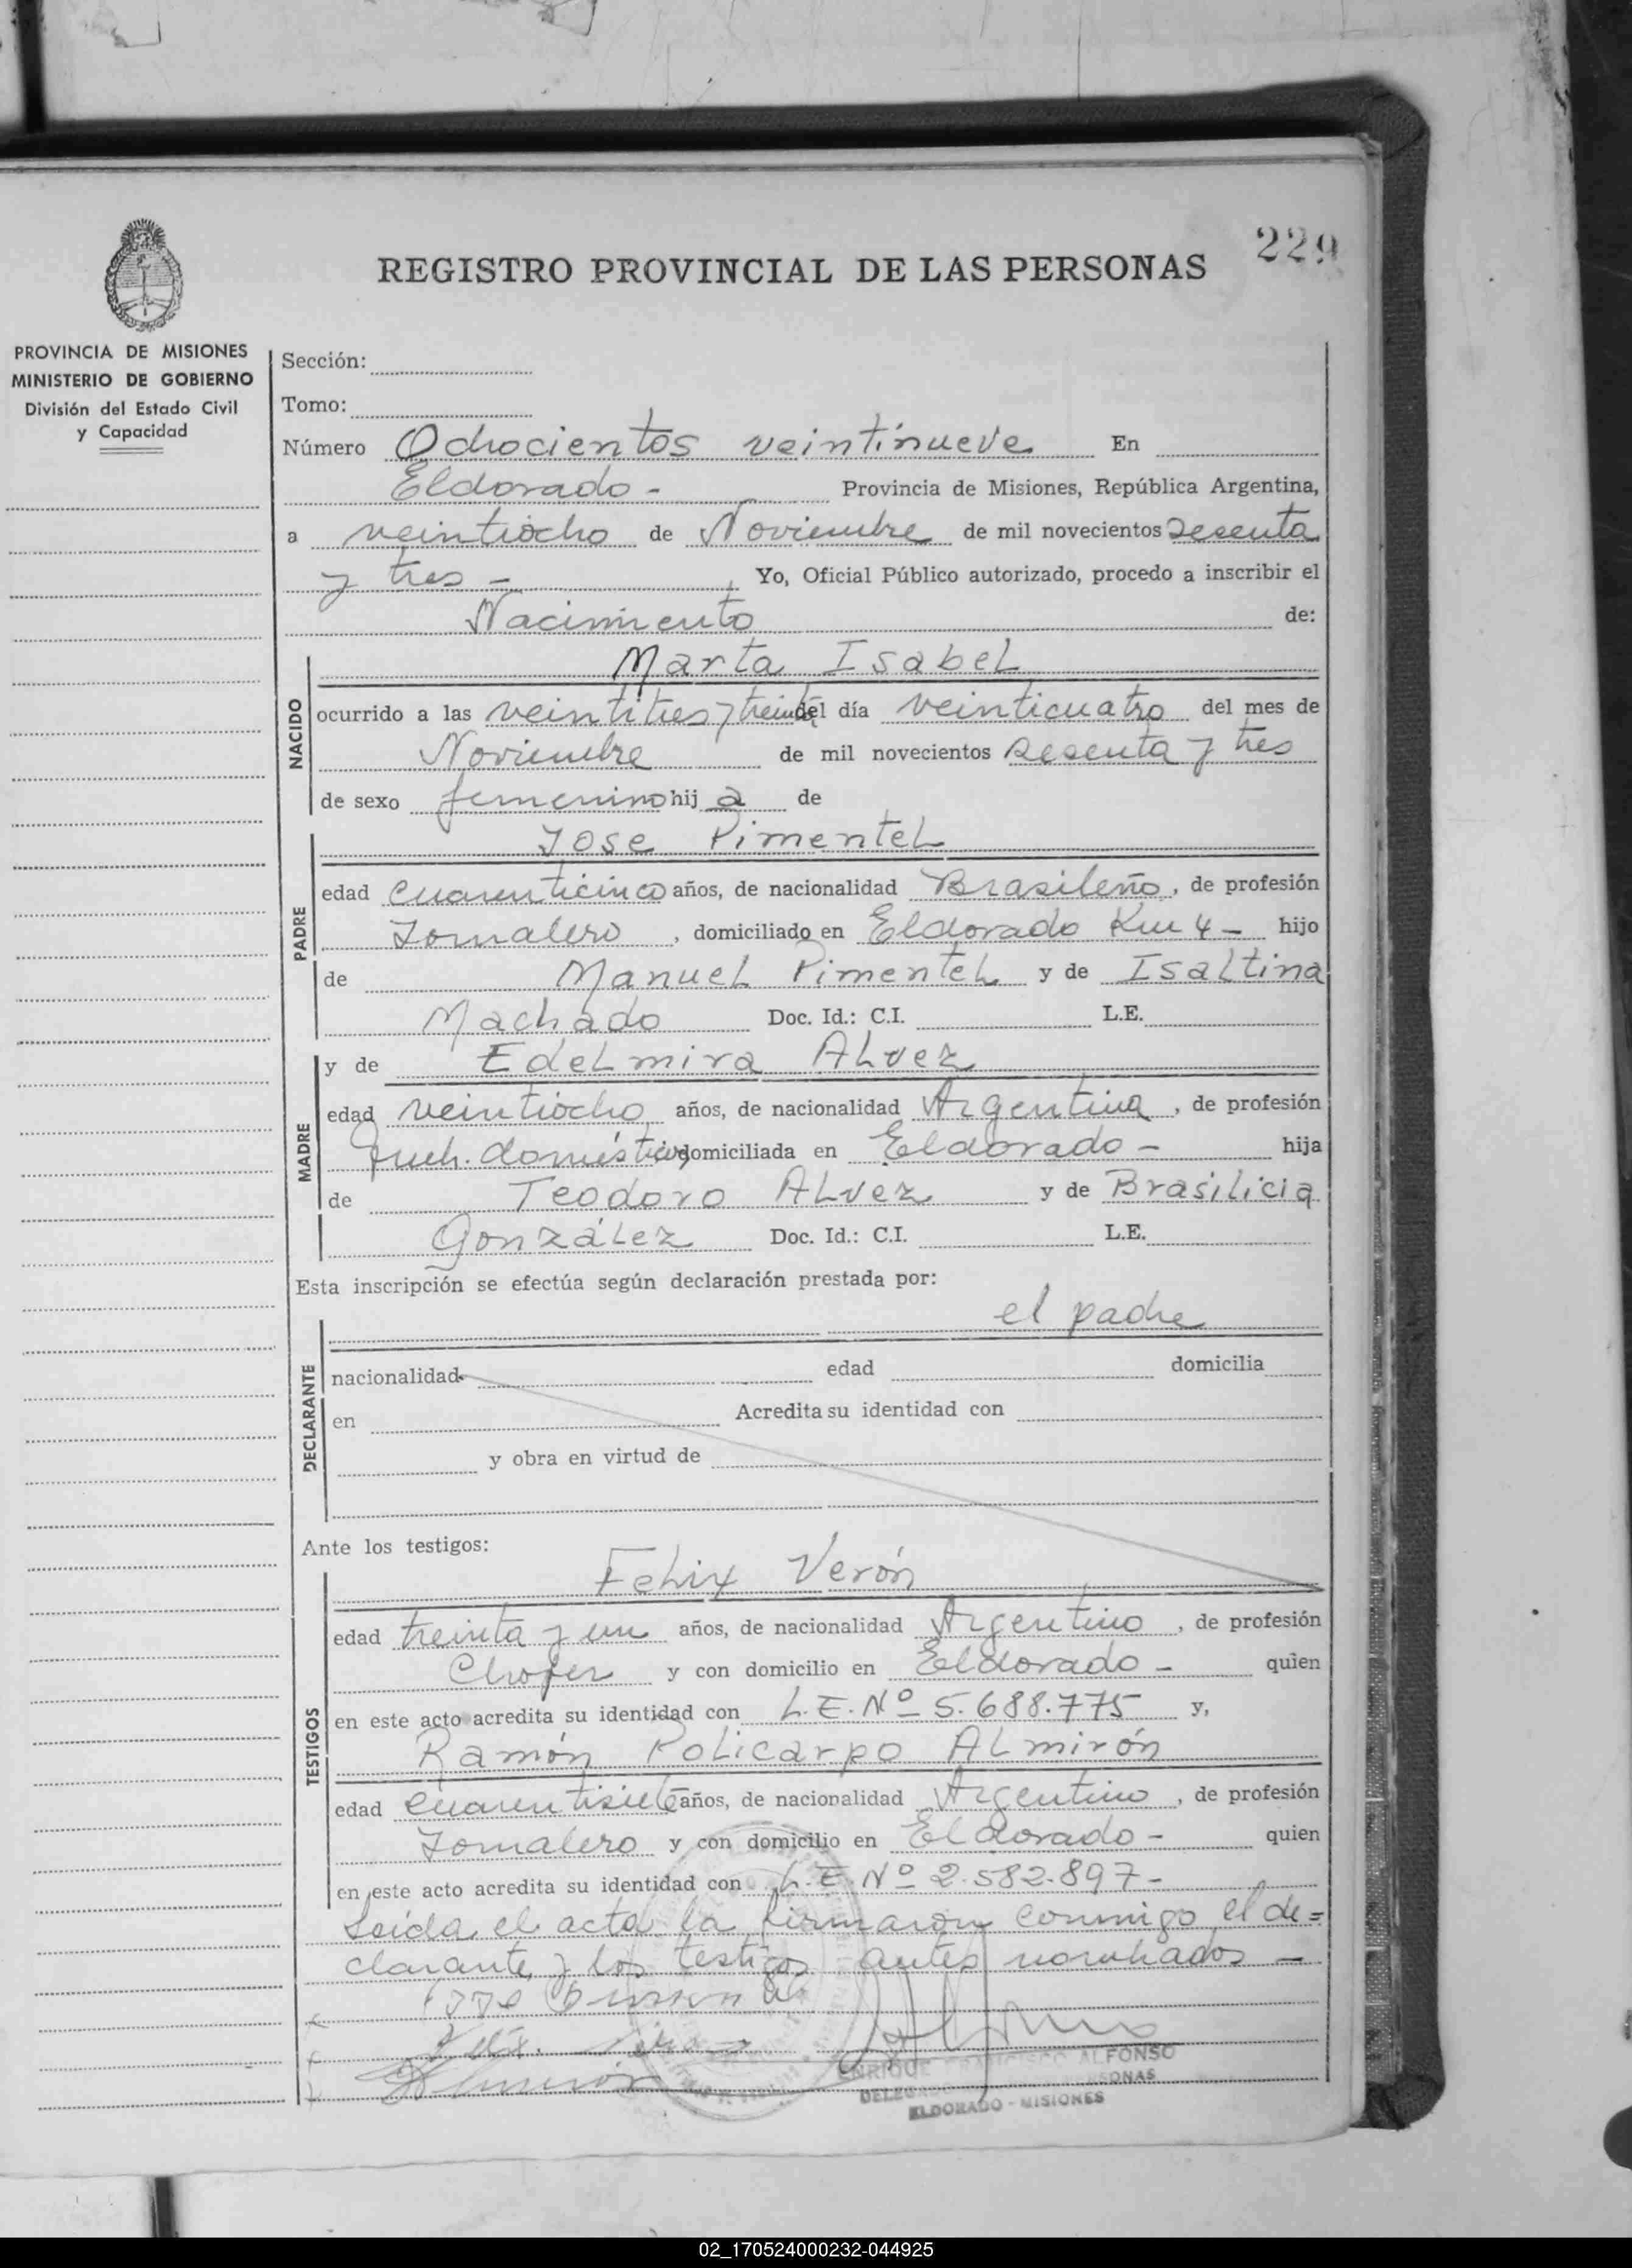 229
REGISTRO PROVINCIAL DE LAS PERSONAS
PROVINCIA DE MISIONES
MINISTERIO DE GOBIERNO
División del Estado Civil
y Capacidad
Sección:
Tomo:
Número Ochocientos veintinueve En
Eldorado - Provincia de Misiones, República Argentina,
a veintiocho de Noviembre de mil novecientos sesenta
y tres - , Yo, Oficial Público autorizado, procedo a inscribir el
Nacimiento de:
NACIDO
Marta Isabel
ocurrido a las veintitres y treinta del día veinticuatro del mes de
Noviembre de mil novecientos sesenta y tres
de sexo femenino hij a de
PADRE
Jose Pimentel
edad cuarenticinco años, de nacionalidad Brasileño, de profesión
Jornalero, domiciliado en Eldorado Km 4 - hijo
de Manuel Pimentel y de Isaltina
Machado Doc. Id.: C.I. L.E.
MADRE
y de Edelmira Alvez
edad veintiocho años, de nacionalidad Argentina, de profesión
Queh. domésticos domiciliada en Eldorado - hija
de Teodoro Alvez y de Brasilicia
González Doc. Id.: C.I. L.E.
Esta inscripción se efectúa según declaración prestada por:
DECLARANTE
el padre
nacionalidad edad domicilia
en Acredita su identidad con
y obra en virtud de
Ante los testigos:
TESTIGOS
Felix Verón
edad treinta y un años, de nacionalidad Argentino, de profesión
Chofer y con domicilio en Eldorado - quien
en este acto acredita su identidad con L.E. Nº 5.688.775 y,
Ramón Policarpo Almirón
edad cuarentisiete años, de nacionalidad Argentino, de profesión
Jornalero y con domicilio en Eldorado - quien
en este acto acredita su identidad con L.E. Nº 2.582.897 -
Leida el acta la firmaron conmigo el de=
clarante y los testigos antes nombrados -
ENRIQUE FRANCISCO ALFONSO
ELDORADO - MISIONES
02_170524000232-044925